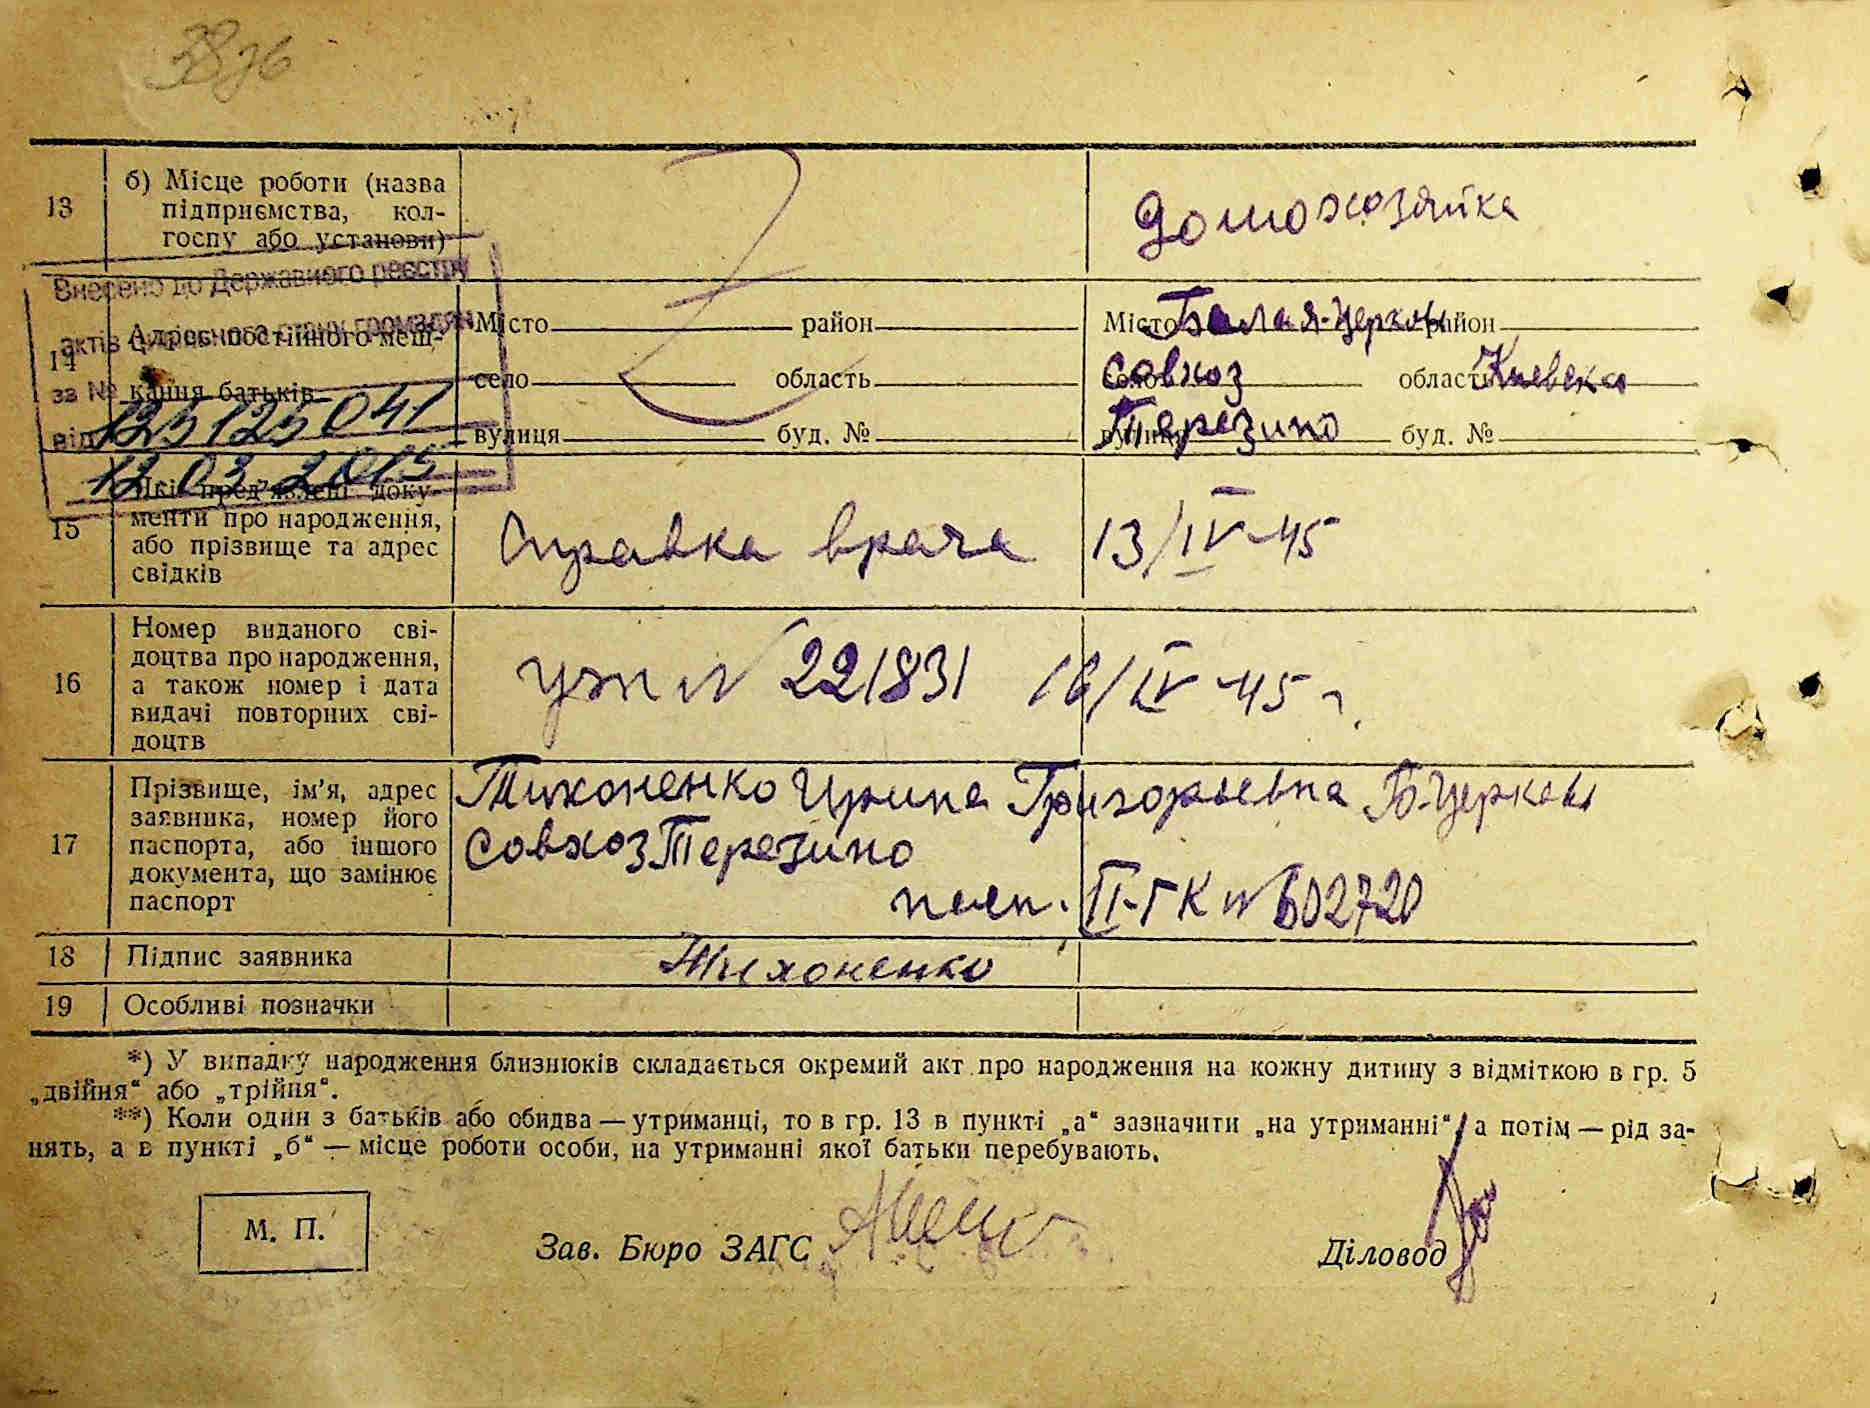 38 зб
13
б) Місце роботи (назва
підприємства, кол-
госпу або установи)
домохозяйка
Внесено до Державного реєстру
актів цивільного стану громадян
за № 125125041
від 12.03.2015
14
Адрес постійного меш-
кання батьків
Місто район
село область
вулиця буд. №
Місто Белая-Церковь район
село совхоз область Киевска
вулиця Терезино буд. №
15
Які пред’явлені доку-
менти про народження,
або прізвище та адрес
свідків
Справка врача 13/IV-45
16
Номер виданого сві-
доцтва про народження,
а також номер і дата
видачі повторних сві-
доцтв
№ 221831 16/IV-45 г.
17
Прізвище, ім’я, адрес
заявника, номер його
паспорта, або іншого
документа, що замінює
паспорт
Тихоненко Ирина Григорьевна Б-Церковь
Совхоз Терезино
пасп. II-ГК № 602720
18 Підпис заявника Тихоненко
19 Особливі позначки
*) У випадку народження близнюків складається окремий акт про народження на кожну дитину з відміткою в гр. 5
„двійня“ або „трійня“.
**) Коли один з батьків або обидва — утриманці, то в гр. 13 в пункті „а“ зазначити „на утриманні“, а потім — рід за-
нять, а в пункті „б“ — місце роботи особи, на утриманні якої батьки перебувають.
М. П.
Зав. Бюро ЗАГС
Діловод